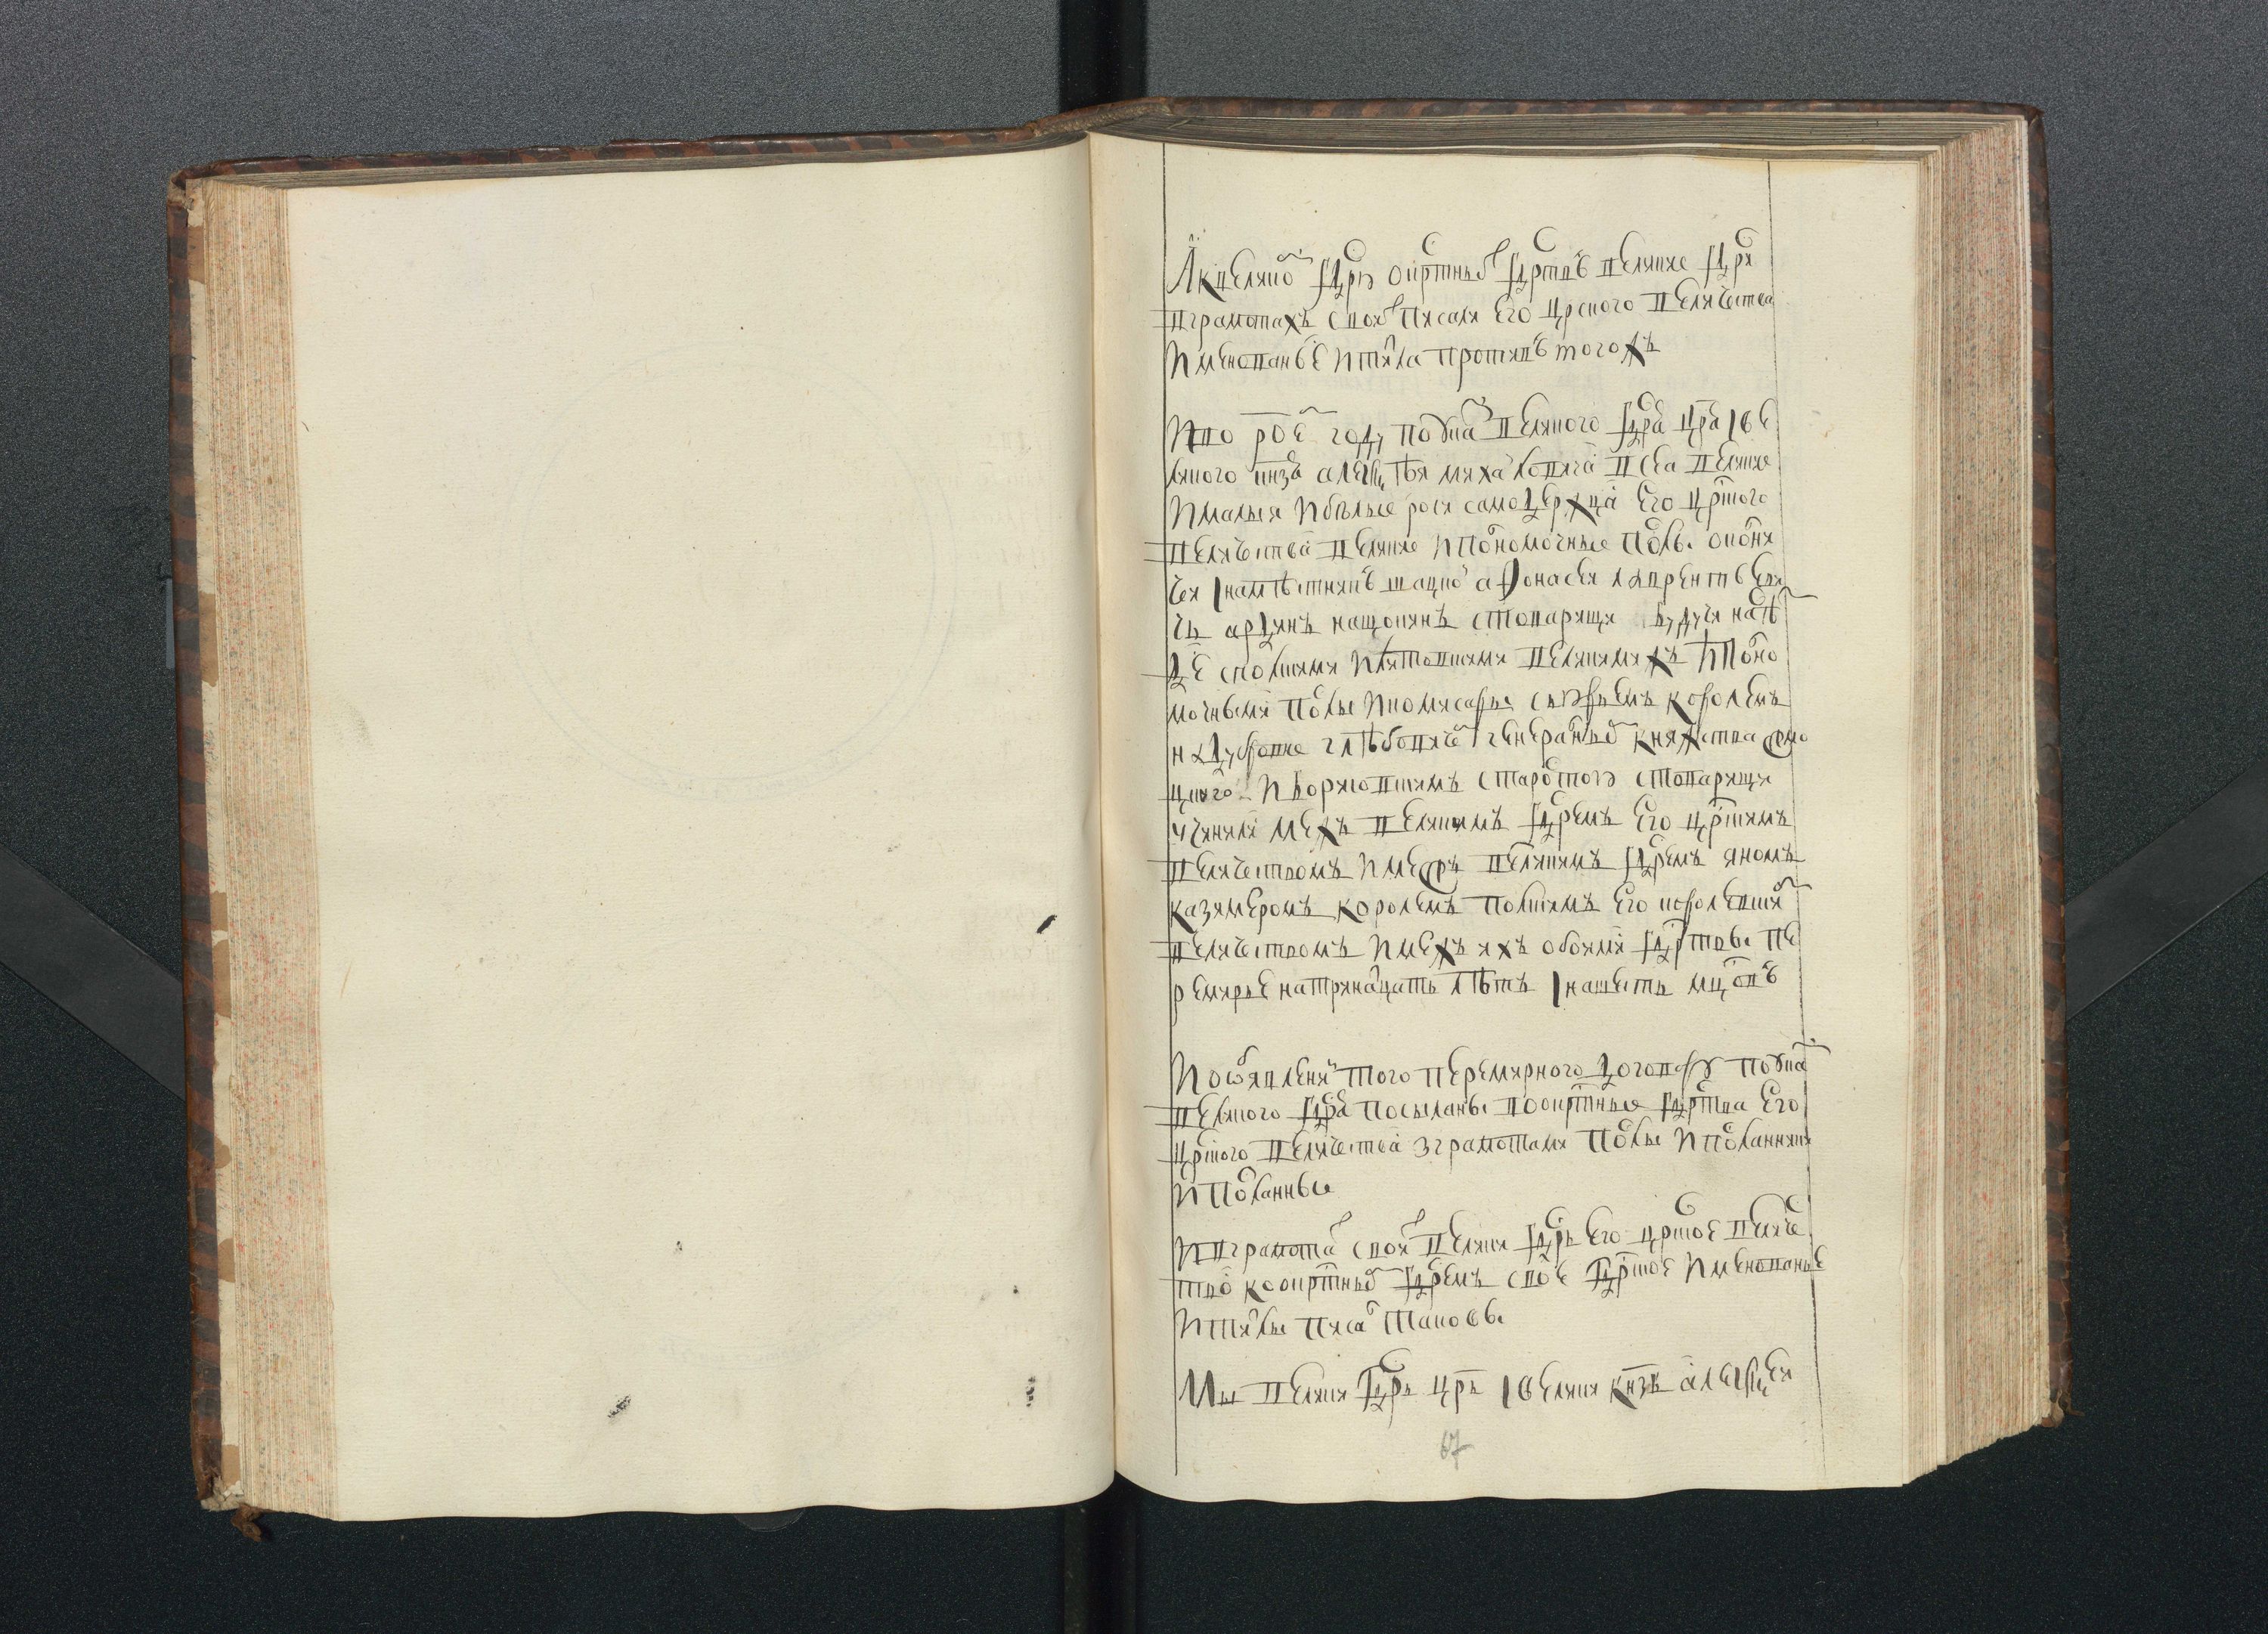 А к великому гдрю окрстныхъ гдрствъ великие гдри
в грамотахъ своихъ писали его црского величества
именованье и титла противъ того жъ
И во рое году по указу великого гдря цря і ве
ликого кнзя алеѯѣя михаиловича всеа великие
и малыя и бѣлые росии самодержца его црского
величества великие и полномочные послы околни
чеи і намѣстникъ шацкои афонасеи лаврентьеви
чь ардинъ нащокинъ с товарищи будучи на съѣз
де с полскими и литовскими великими жъ и полно
мочными послы и комисары съ юрьемъ королемъ
глѣбовичемъ генералныхъ княжства жмо
цкого и с товарищи
учинили межъ великимъ гдремъ его црскимъ
величествомъ и межъ великимъ гдремъ яномъ
казимеромъ королемъ полскимъ его королевскимъ
величествомъ и межъ ихъ обоими гдрствы пе
ремирье на тринатцать лѣтъ і на шесть мцовъ
И о объявлении того перемирного договору по указу
великого гдря посыланы во окрстные гдрства его
црского величества з грамотами послы и посланники
и посланные
И в грамотахъ своихъ великии гдрь его црское величе
ство ко окрстнымъ гдремъ свое гдрское именованье
и титлы писалъ таковы
Мы великии гдрь црь і великии кнзь алеѯѣи
67